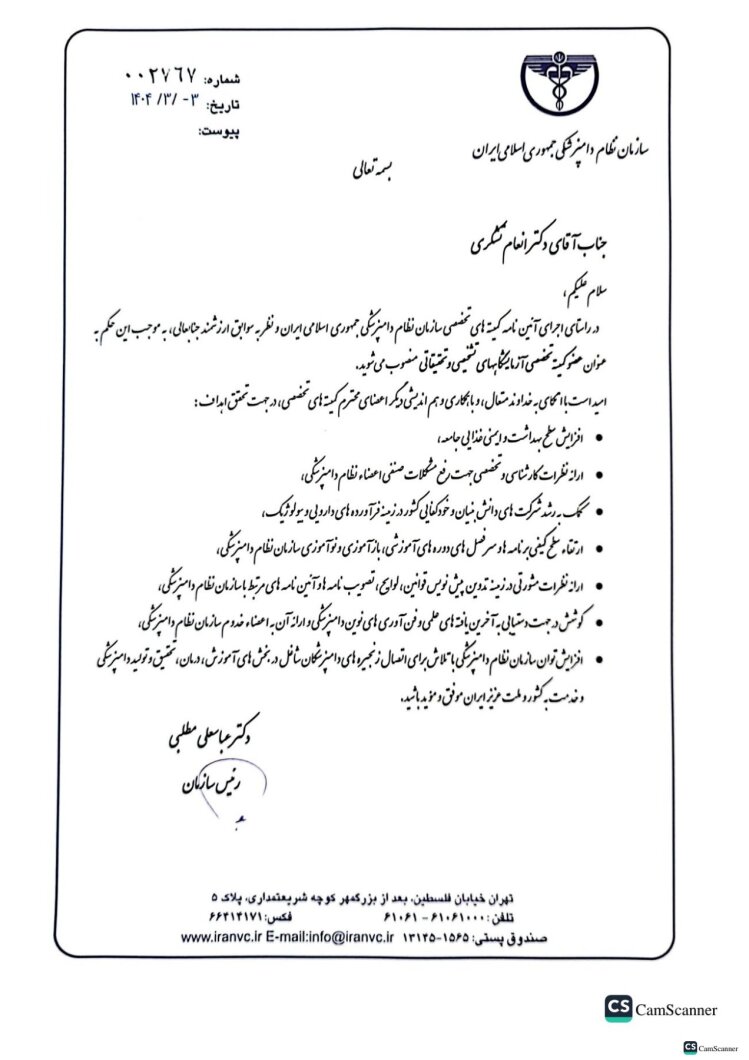 شماره: ۰۰۲۷۶۷
تاریخ: ۱۴۰۴/۳/-۳
پیوست:
سازمان نظام دامپزشکی جمهوری اسلامی ایران
بسمه تعالی
جناب آقای دکتر انعام لشکری
سلام علیکم،
در راستای اجرای آئین نامه کمیته های تخصصی سازمان نظام دامپزشکی جمهوری اسلامی ایران و نظر به سوابق ارزشمند جنابعالی، به موجب این حکم به
عنوان عضو کمیته تخصصی آزمایشگاههای تشخیصی و تحقیقاتی منصوب می شوید.
امید است با اتکای به خداوند متعال، و با همکاری و هم اندیشی دیگر اعضای محترم کمیته های تخصصی، در جهت تحقق اهداف:
• افزایش سطح بهداشت و ایمنی غذایی جامعه،
• ارائه نظرات کارشناسی و تخصصی جهت رفع مشکلات صنفی اعضاء نظام دامپزشکی،
• کمک به رشد شرکت های دانش بنیان و خودکفایی کشور در زمینه فرآورده های دارویی و بیولوژیک،
• ارتقاء سطح کیفی برنامه ها و سرفصل های دوره های آموزشی، بازآموزی و نوآموزی سازمان نظام دامپزشکی،
• ارائه نظرات مشورتی در زمینه تدوین پیش نویس قوانین، لوایح، تصویب نامه ها و آئین نامه های مرتبط با سازمان نظام دامپزشکی،
• کوشش در جهت دستیابی به آخرین یافته های علمی و فن آوری های نوین دامپزشکی و ارائه آن به اعضاء خدوم سازمان نظام دامپزشکی،
• افزایش توان سازمان نظام دامپزشکی با تلاش برای اتصال زنجیره های دامپزشکان شاغل در بخش های آموزش، درمان، تحقیق و تولید دامپزشکی
و خدمت به کشور و ملت عزیز ایران موفق و مؤید باشید.
دکتر عباسعلی مطلبی
رئیس سازمان
تهران خیابان فلسطین، بعد از بزرگمهر کوچه شریعتمداری، پلاک ۵
تلفن: ۶۱۰۶۱۰۰۰ - ۶۱۰۶۱ فکس: ۶۶۴۱۴۱۷۱
صندوق پستی: ۱۵۶۵-۱۳۱۴۵ www.iranvc.ir E-mail:info@iranvc.ir
CS CamScanner
CS CamScanner